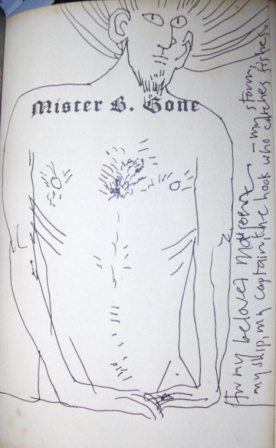 Mister B. Gone
For my beloved — my storm,
my ship, my captain, the hook who catches fishes.